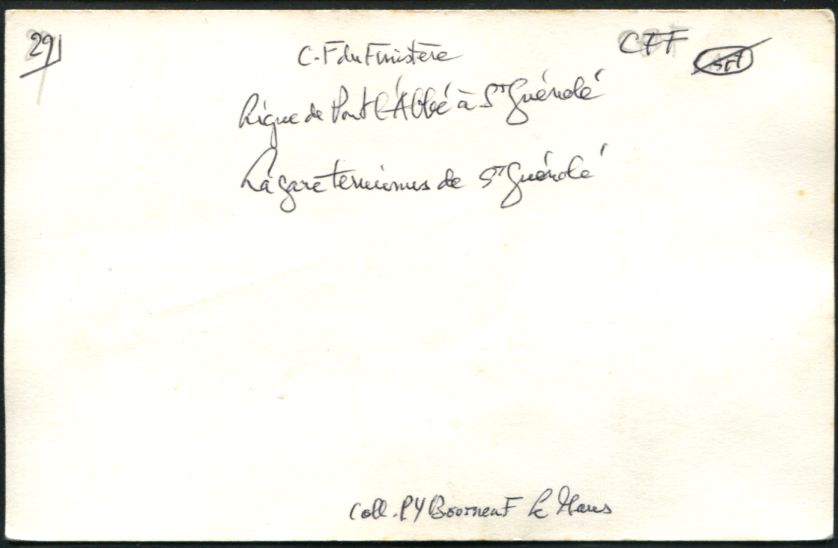 29
C.F du Finistère
CFF
Ligne de Pont l'Abbé à St Guénolé
La gare terminus de St Guénolé
Coll. PY Bourneuf Le Mans